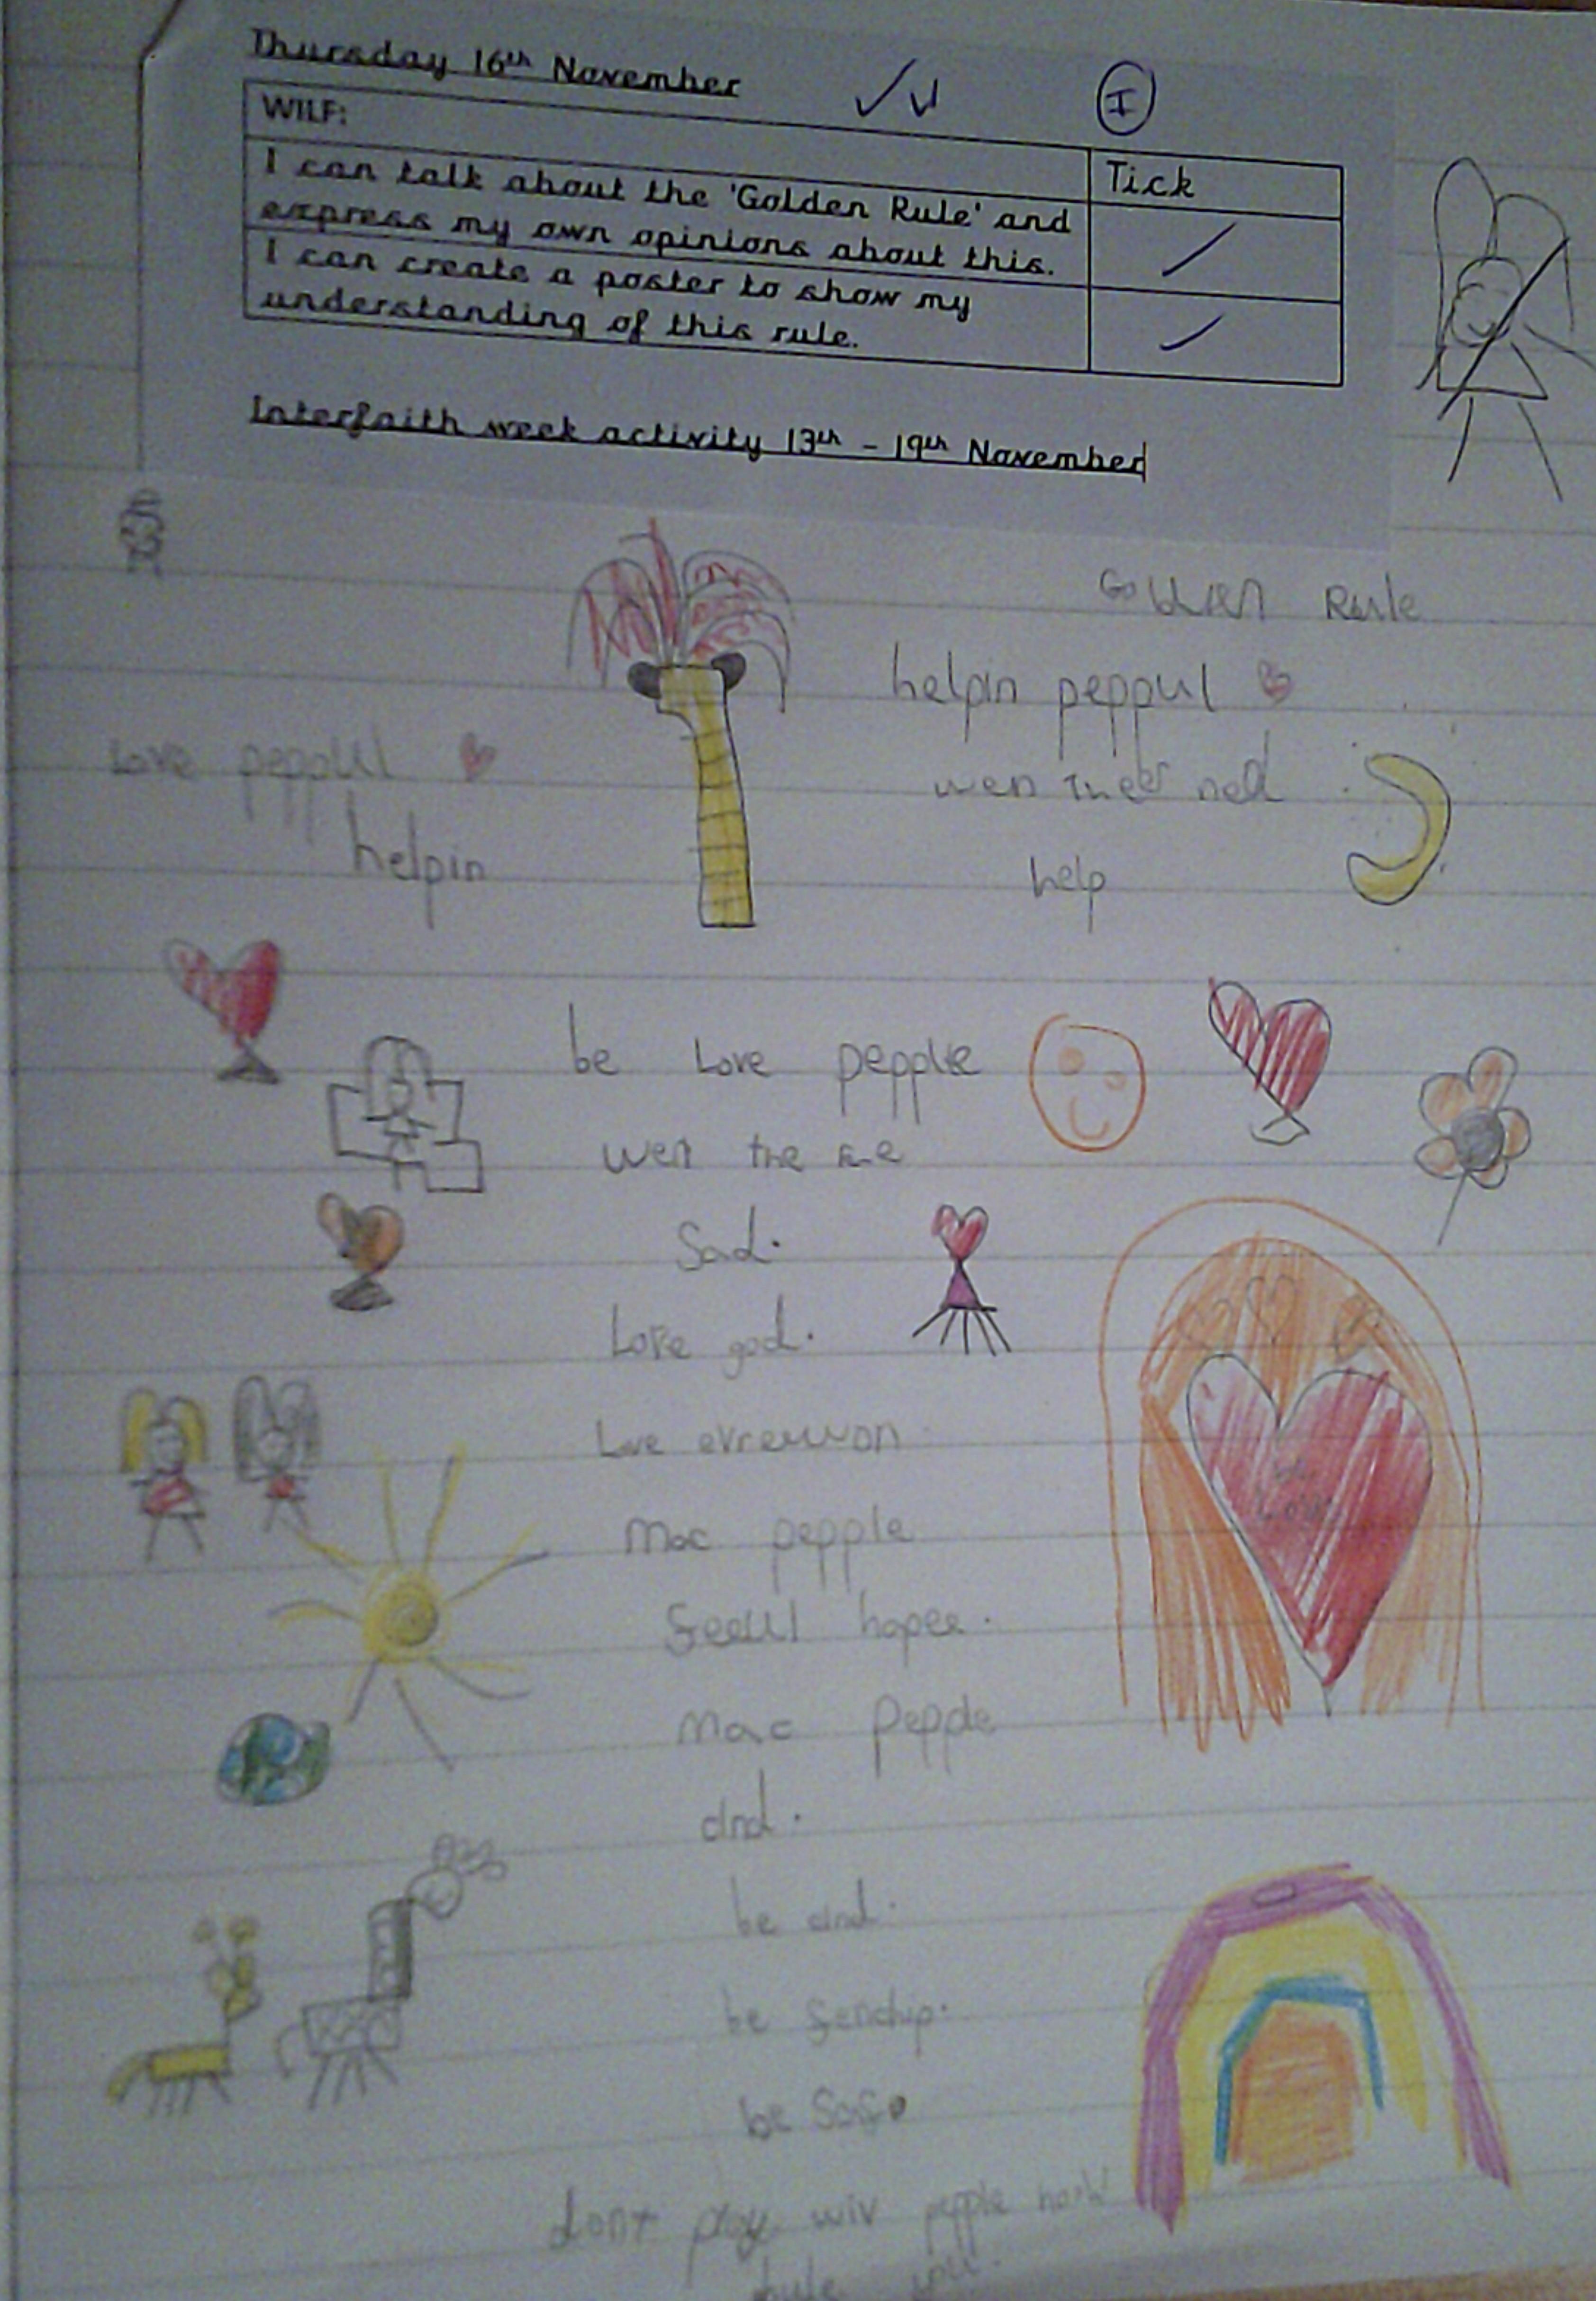 Thursday 16th November
I
WILF:
Tick
I can talk about the 'Golden Rule' and
express my own opinions about this.
I can create a poster to show my
understanding of this rule.
Interfaith week activity 13th - 19th November
Golden Rule
helpin peppul
wen need
help
Love peppul
helpin
be Love people
wen the are
Sad.
Love god.
Love evrewon
mac pepple
feeul hapee.
mac pepple
cind.
be cind.
be fendip.
be Safe
be Love
dont play wiv pepple